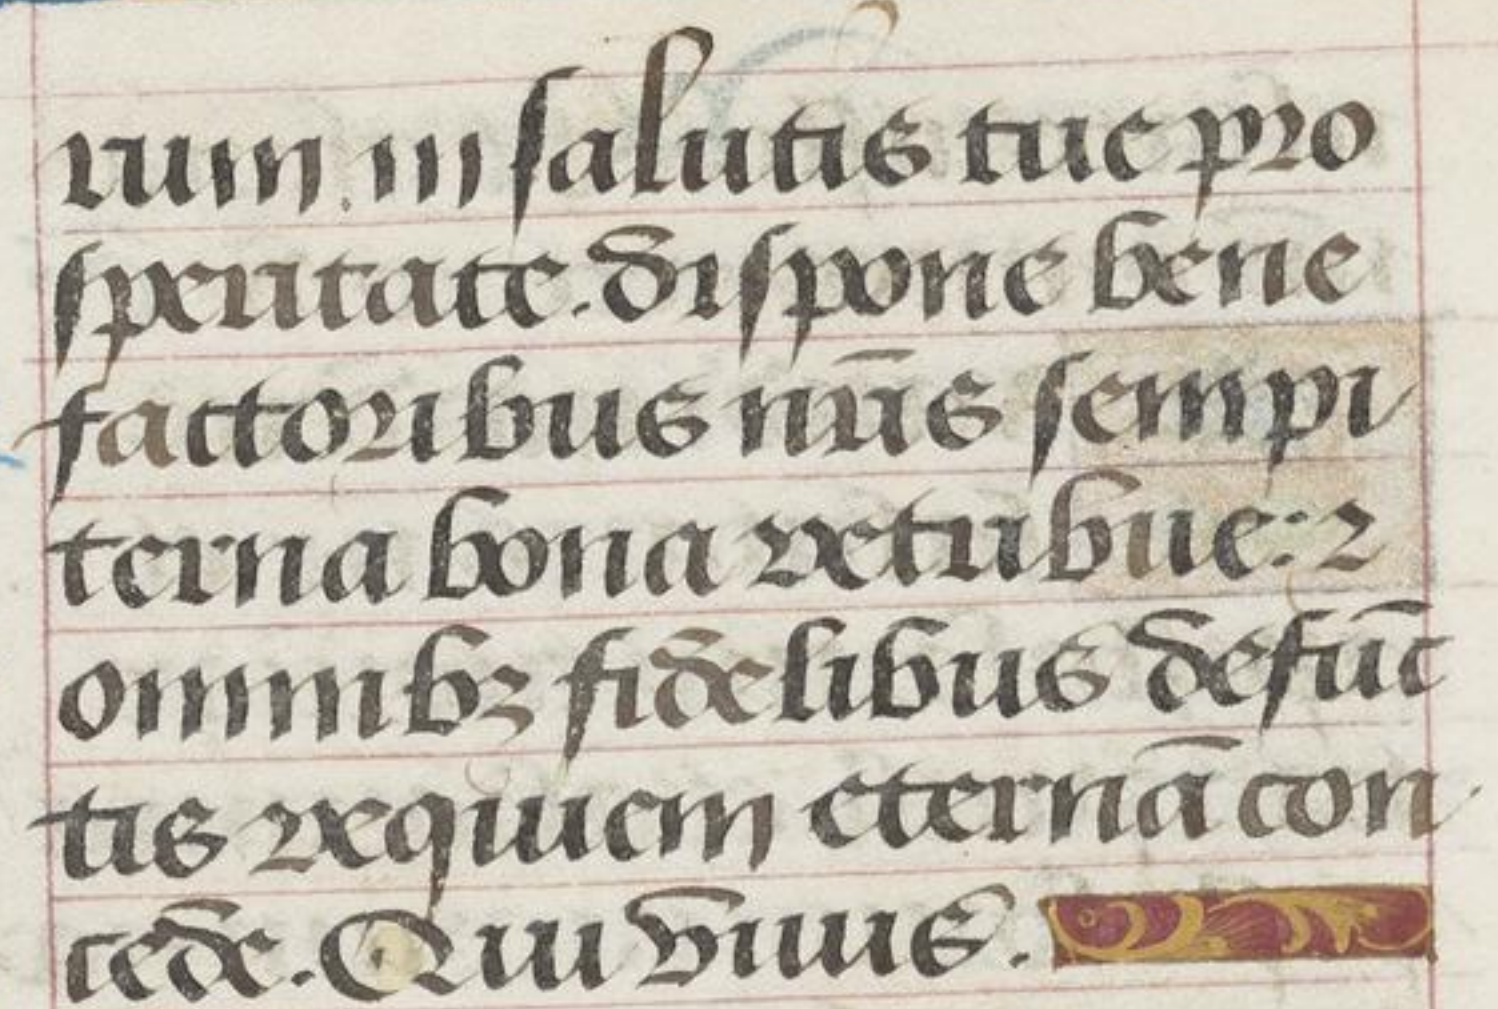 rum. in salutis tue pro
speritate. dispone bene
factoribus nr̄is sempi
terna bona retribue: ⁊
omnibꝫ fidelibus defūc
tis requiem eternā con
cede. Qui viuis.